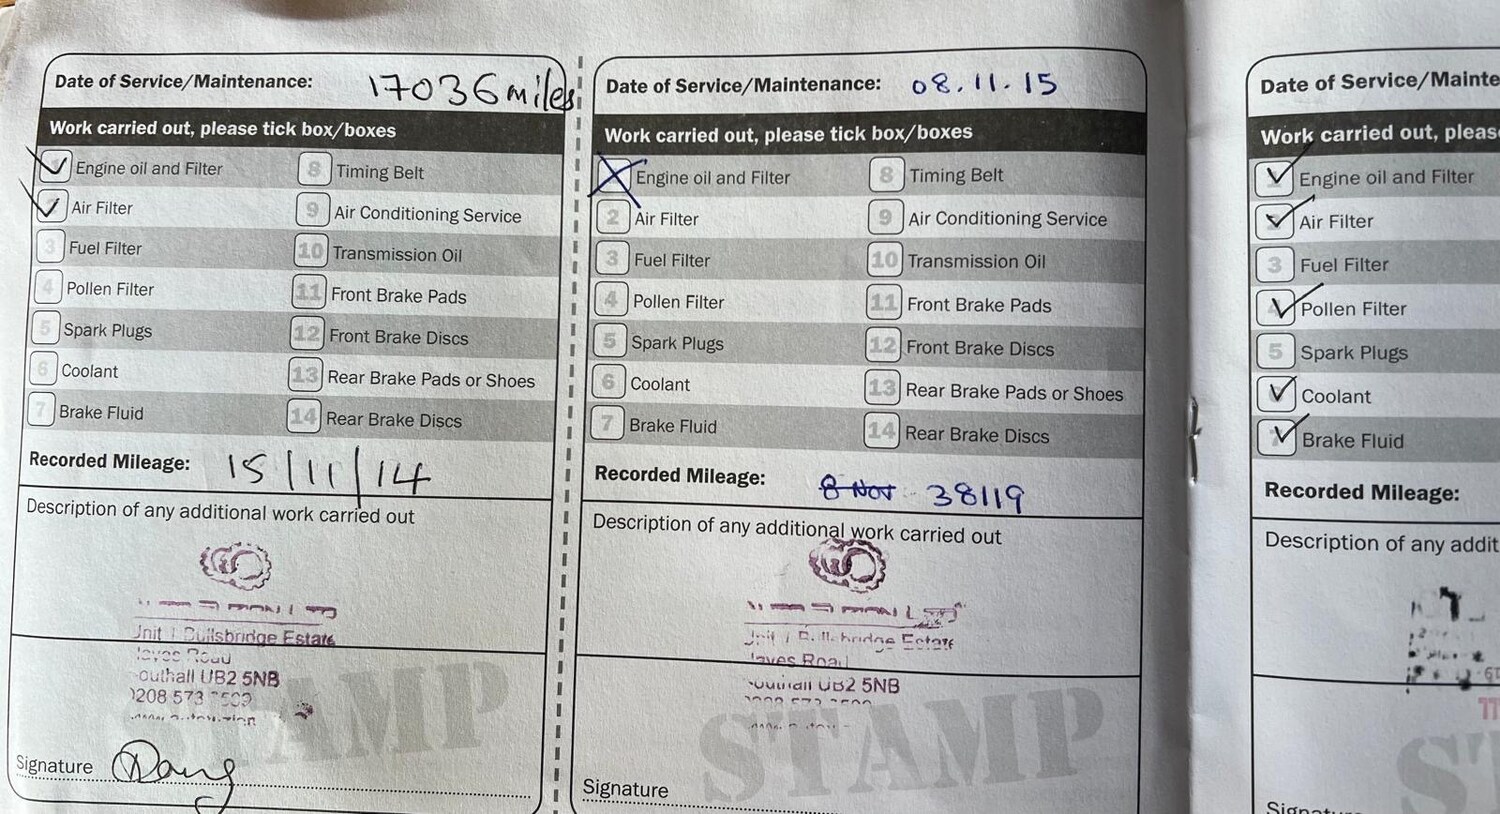 Date of Service/Maintenance: 17036 miles
Work carried out, please tick box/boxes
Engine oil and Filter
8 Timing Belt
Air Filter
9 Air Conditioning Service
3 Fuel Filter
10 Transmission Oil
4 Pollen Filter
11 Front Brake Pads
5 Spark Plugs
12 Front Brake Discs
6 Coolant
13 Rear Brake Pads or Shoes
7 Brake Fluid
14 Rear Brake Discs
Recorded Mileage: 15/11/14
Description of any additional work carried out
Unit 1 Bullsbridge Estate
Road
outhall UB2 5NB
0208 573
STAMP
Signature
Date of Service/Maintenance: 08.11.15
Work carried out, please tick box/boxes
Engine oil and Filter
8 Timing Belt
2 Air Filter
9 Air Conditioning Service
3 Fuel Filter
10 Transmission Oil
4 Pollen Filter
11 Front Brake Pads
5 Spark Plugs
12 Front Brake Discs
6 Coolant
13 Rear Brake Pads or Shoes
7 Brake Fluid
14 Rear Brake Discs
Recorded Mileage: 8 Nov 38119
Description of any additional work carried out
Estate
ayes Road
UB2 5NB
STAMP
Signature
Date of Service/Mainte
Work carried out, pleas
Engine oil and Filter
Air Filter
3 Fuel Filter
Pollen Filter
5 Spark Plugs
Coolant
Brake Fluid
Recorded Mileage:
Description of any addit
S
Signature